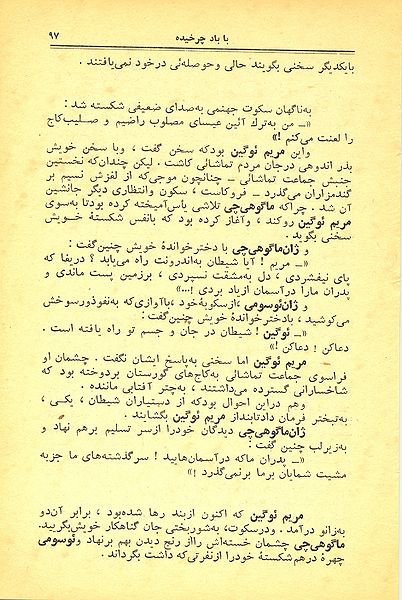 با باد چرخیده
۹۷
بایکدیگر سخنی بگویند حالی وحوصله‌ئی درخود نمی‌یافتند .
به‌ناگهان سکوت جهنمی به‌صدای ضعیفی شکسته شد :
«ـ من به‌ترك آئین عیسای مصلوب راضیم و صلیب‌کاج
را لعنت می‌کنم !»
واین مریم ئوگین بودکه سخن گفت ، وبا سخن خویش
بذر اندوهی درجان مردم تماشائی کاشت . لیکن چندان‌که نخستین
جنبش جماعت تماشائی ـ چنانچون موجی‌که از لغزش نسیم بر
گندمزاران می‌گذرد ـ فروکاست ، سکون وانتظاری دیگر جانشین
آن شد . چراکه ماگوهی‌چی تلاشی یاس‌آمیخته کرده بودتا به‌سوی
مریم ئوگین روکند ، وآغاز کرده بود که بانفس شکستهٔ خویش
سخنی بگوید .
و ژان‌ماگوهی‌چی با دخترخواندهٔ خویش چنین‌گفت :
«ـ مریم ! آیا شیطان به‌اندرونت راه می‌یابد ؟ دریغا که
پای نیفشردی ، دل به‌مشقت نسپردی ، برزمین پست ماندی و
پدران مارا درآسمان ازیاد بردی !...»
و ژان‌ئوسومی ،ازسکوبه‌خود ،باآوازی‌که به‌نفوذورسوخش
می‌کوشید ، بادخترخواندهٔ خویش چنین‌گفت :
«ـ ئوگین ! شیطان در جان و جسم تو راه یافته است .
دعاکن ! دعاکن !»
مریم ئوگین اما سخنی به‌پاسخ ایشان نگفت . چشمان او
فراسوی جماعت تماشائی به‌کاج‌های گورستان بردوخته بود که
شاخسارانی گسترده می‌داشتند ، به‌چتر آفتابی ماننده .
وهم دراین احوال بودکه از دستیاران شیطان ، یکی ،
به‌تبختر فرمان دادتابنداز مریم ئوگین بگشایند .
ژان‌ماگوهی‌چی دیدگان خودرا ازسر تسلیم برهم نهاد و
به‌زیرلب چنین گفت :
«ـ پدران ماکه درآسمان‌هایید ! سرگذشته‌های ما جزبه
مشیت شمایان برما برنمی‌گذرد !»
مریم ئوگین که اکنون ازبند رها شده‌بود ، برابر آن‌دو
به‌زانو درآمد . ودرسکوت، به‌شوربختی جان گناهکار خویش‌بگریید.
ماگوهی‌چی چشمان خسته‌اش رااز رنج دیدن بهم برنهاد وئوسومی
چهره درهم‌شکستهٔ خودرا ازنفرتی‌که داشت بگرداند .